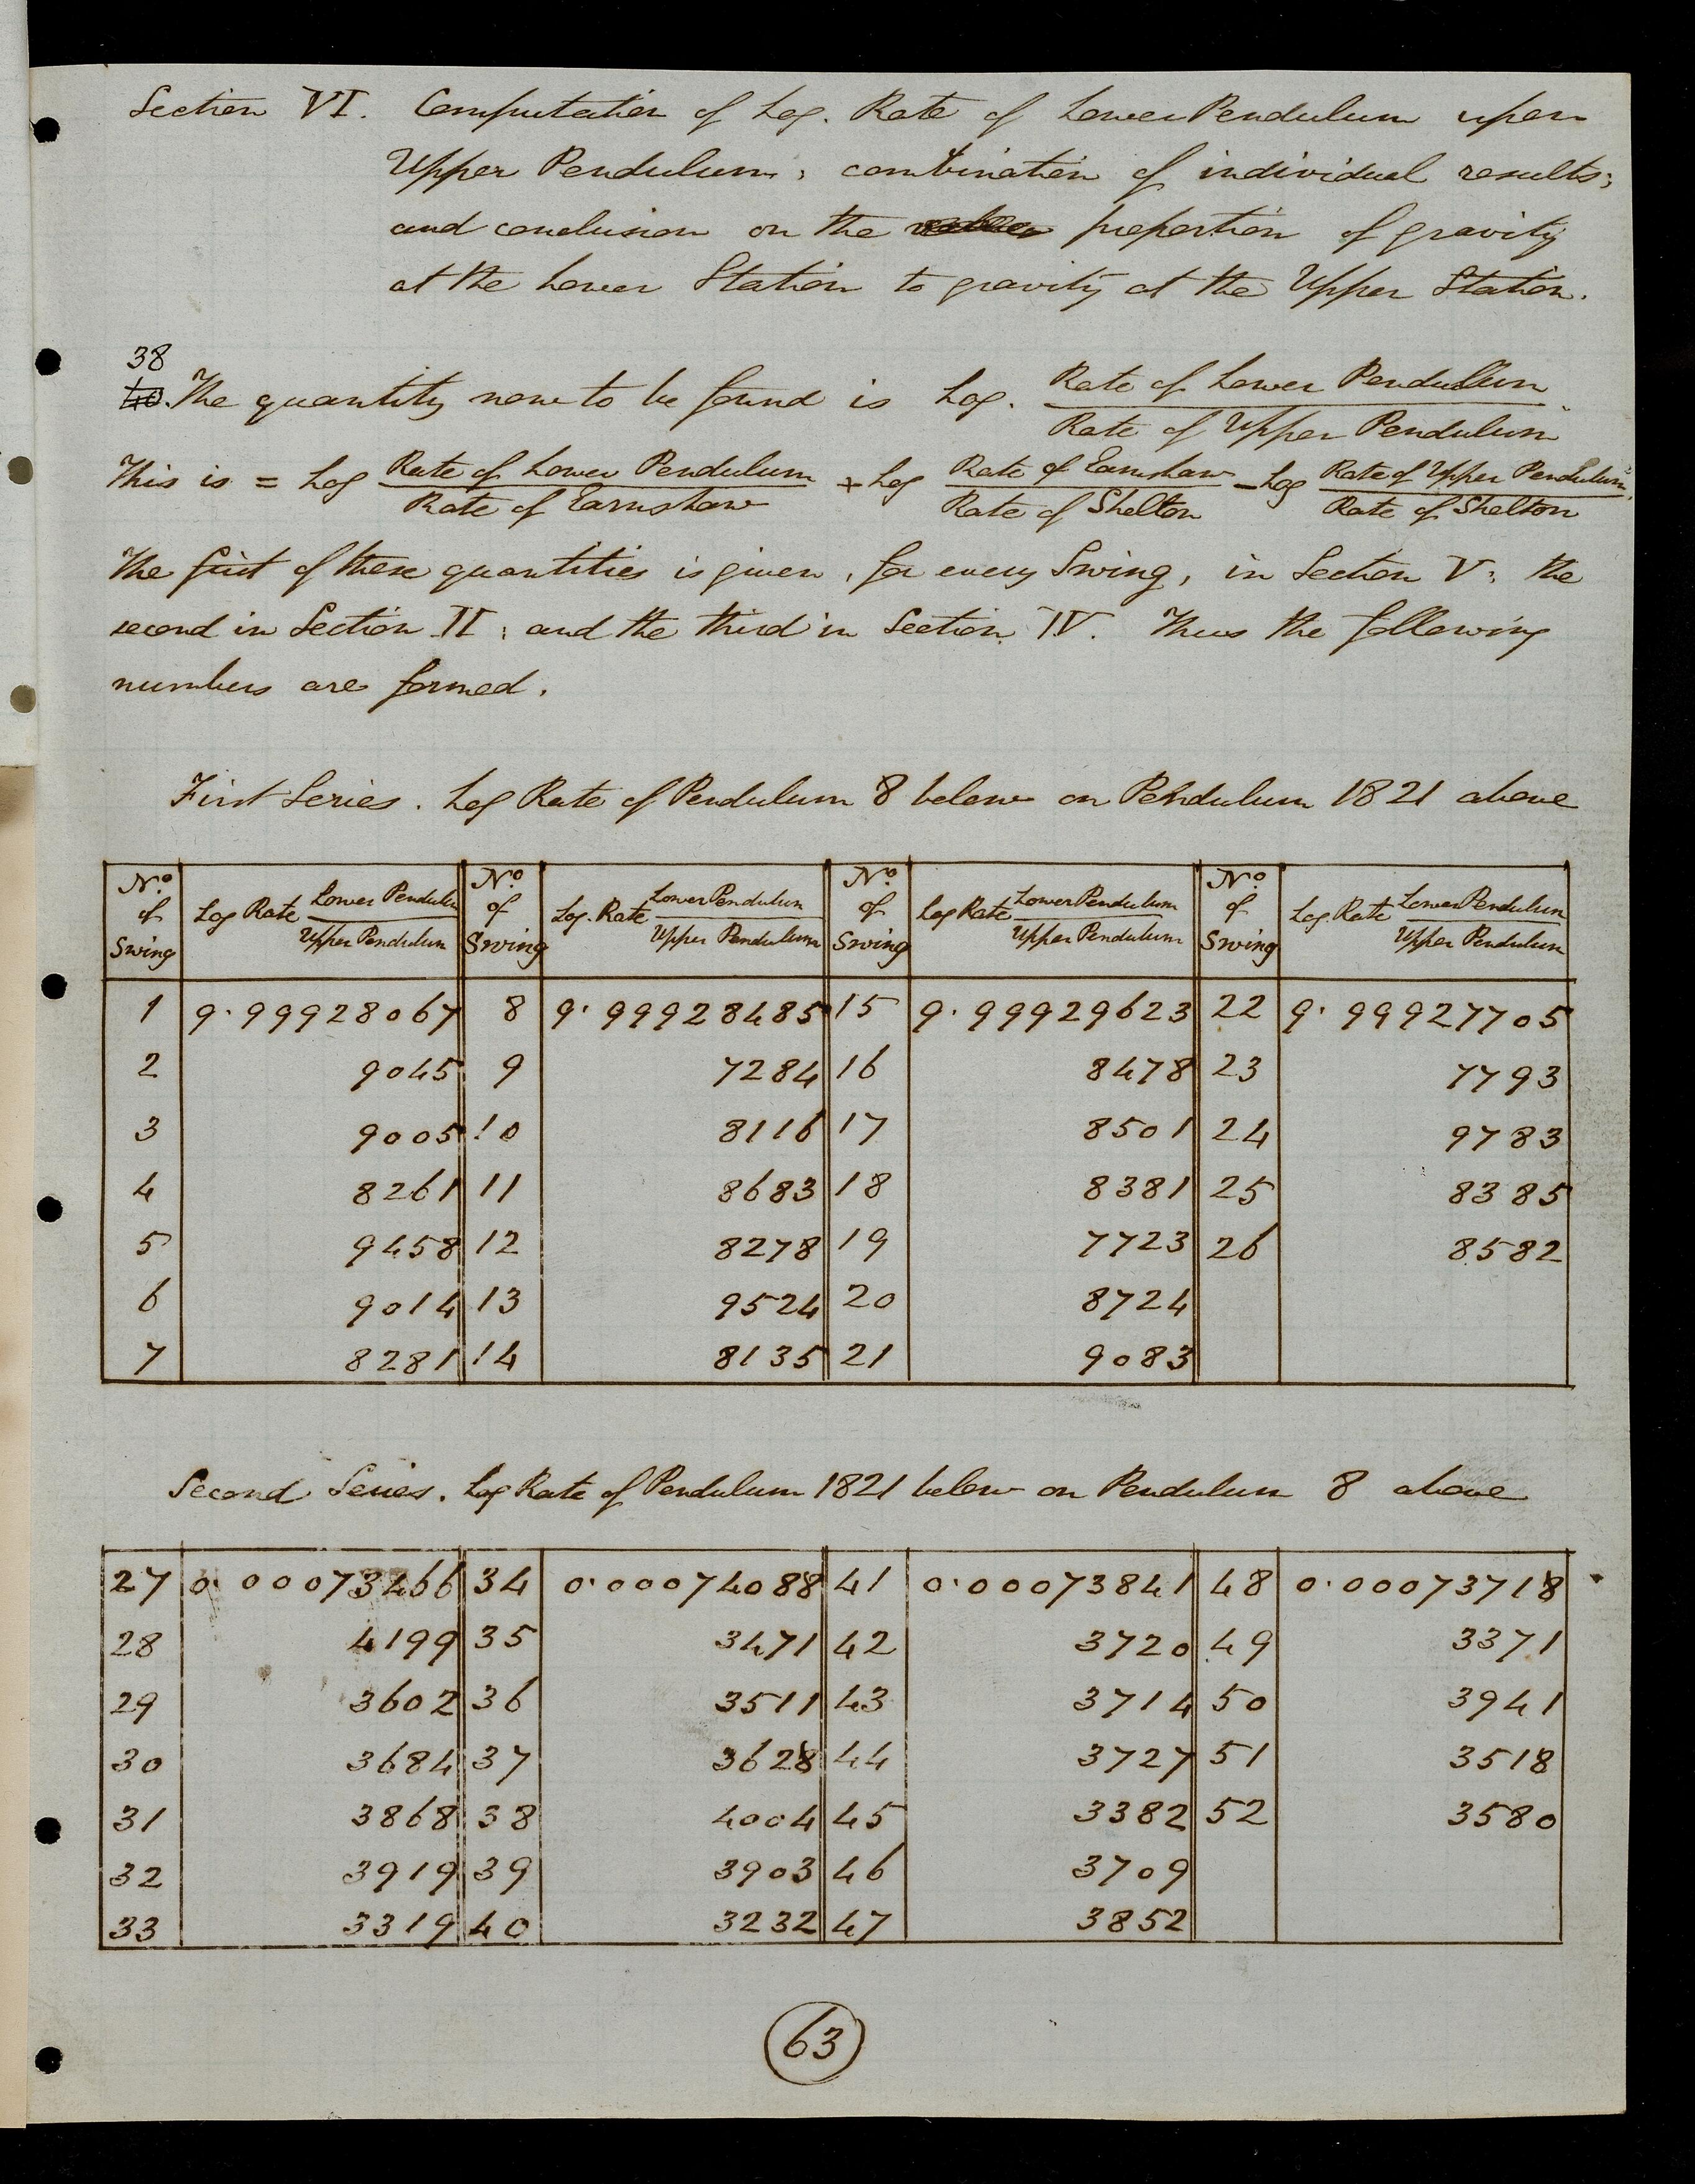 Section VI. Computation of Log. Rate of Lower Pendulum upon
Upper Pendulum; combination of individual results;
and conclusion on the proportion of gravity
at the Lower Station to gravity at the Upper Station.
38
40. The quantity now to be found is Log. Rate of Lower Pendulum / Rate of Upper Pendulum.
This is = Log Rate of Lower Pendulum / Rate of Earnshaw + Log Rate of Earnshaw / Rate of Shelton - Log Rate of Upper Pendulum / Rate of Shelton.
The first of these quantities is given, for every Swing, in Section V; the
second in Section II; and the third in Section IV. Thus the following
numbers are formed.
First Series. Log Rate of Pendulum 8 below on Pendulum 1821 above
No. of Swing | Log Rate Lower Pendulum / Upper Pendulum | No. of Swing | Log. Rate Lower Pendulum / Upper Pendulum | No. of Swing | Log Rate Lower Pendulum / Upper Pendulum | No. of Swing | Log. Rate Lower Pendulum / Upper Pendulum
1 9.99928067 8 9.99928485 15 9.99929623 22 9.99927705
2 9045 9 7284 16 8478 23 7793
3 9005 10 8116 17 8501 24 9783
4 8261 11 8683 18 8381 25 8385
5 9458 12 8278 19 7723 26 8582
6 9014 13 9524 20 8724
7 8281 14 8135 21 9083
Second Series. Log Rate of Pendulum 1821 below on Pendulum 8 above
27 0.00073466 34 0.00074088 41 0.00073841 48 0.00073718
28 4199 35 3471 42 3720 49 3371
29 3602 36 3511 43 3714 50 3941
30 3684 37 3628 44 3727 51 3518
31 3868 38 4004 45 3382 52 3580
32 3919 39 3903 46 3709
33 3319 40 3232 47 3852
63